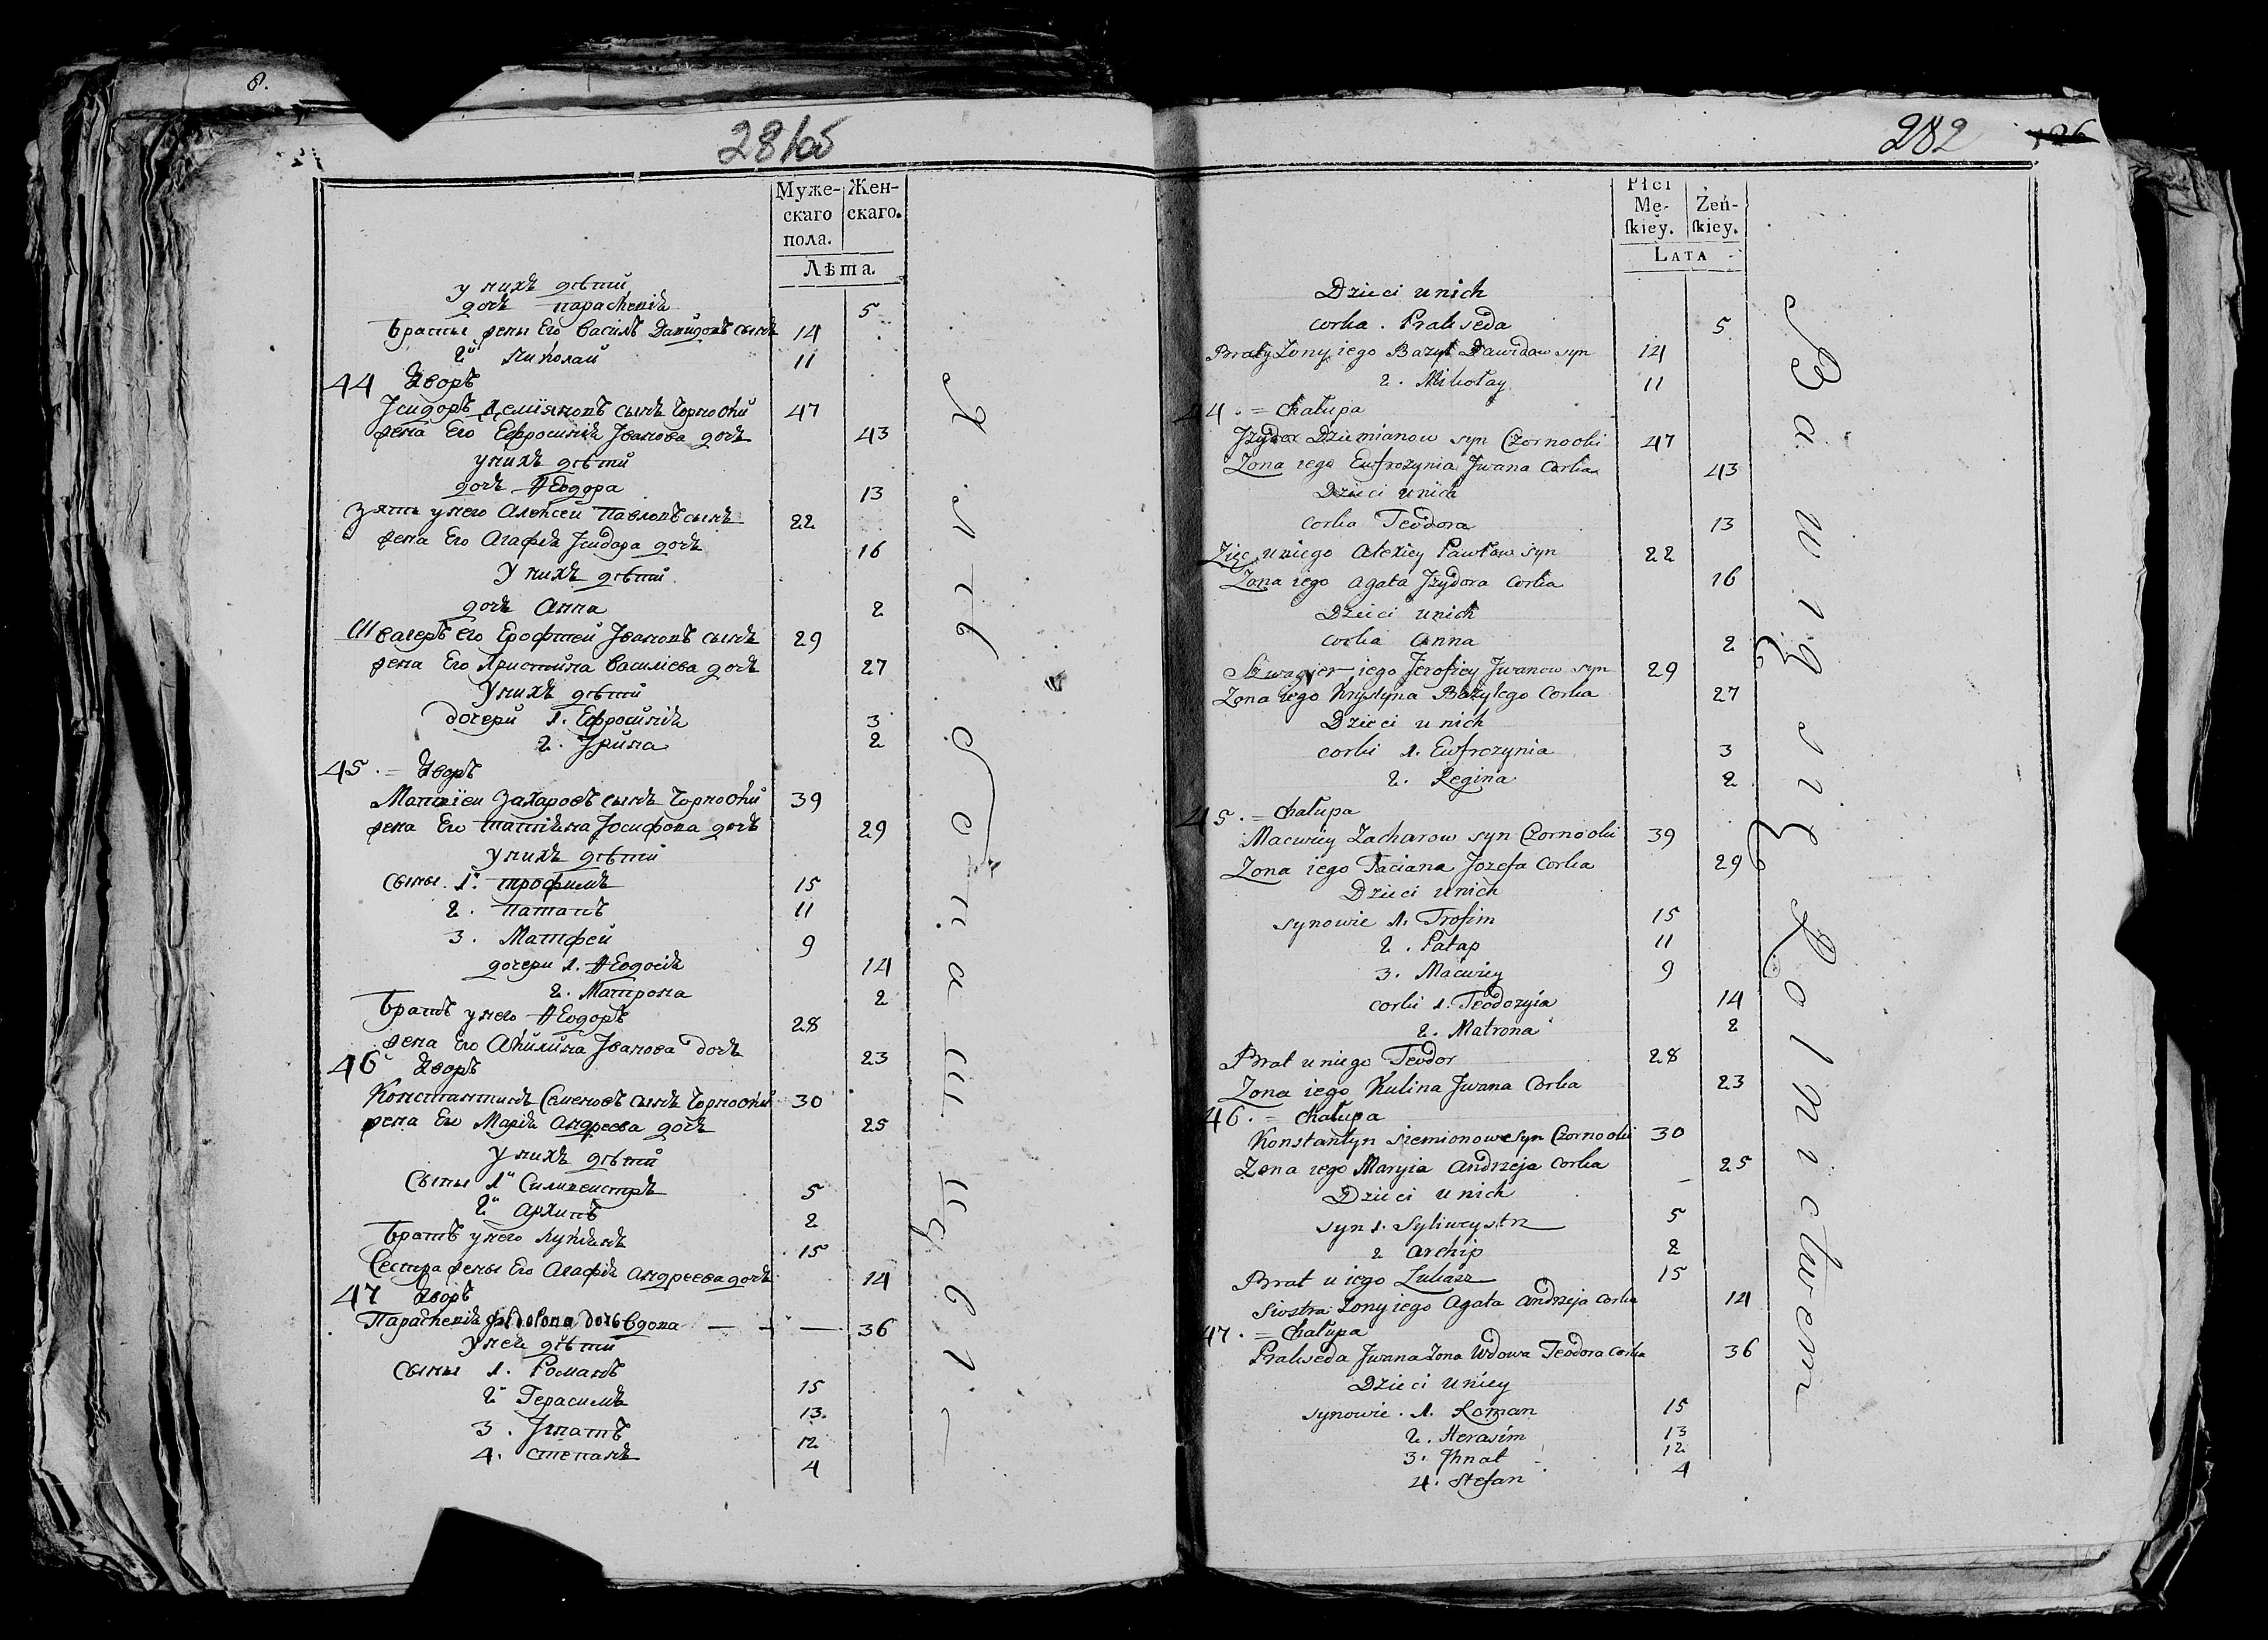 8.
281об
Муже- Жен-
скаго скаго.
пола.
Лѣта.
у нихъ дѣтй
дочь парасковіа 5
Братьі жены Его Василь Давидовъ сынъ 14
2й николай 11
44 Дворъ
Јсидоръ Демїяновъ сынъ Чорноокій 47
жена Его Ефросиніа Јванова дочь 43
у нихъ дѣтй
дочь Ѳеодора 13
Зять у него Алексей Павловъ сынъ 22
жена Его Агафіа Јсидора дочь 16
У нихъ дѣтй
дочь Анна 2
Швагеръ его Ерофтей Јвановъ сынъ 29
жена Его Христина Василіева дочь 27
У нихъ дѣтй
дочерй 1. Ефросиніа 3
2. Јрина 2
45 . = Дворъ
Матвїей Захаровъ сынъ Чорноокій 39
жена Его татіана Јосифова дочь 29
у нихъ дѣтй
Сыны 1й трофимъ 15
2. патапъ 11
3. Матфей 9
дочери 1. Ѳеодосіа 14
2. Матрона 2
братъ у него Ѳеодоръ 28
жена Его Акилина Јванова дочь 23
46 Дворъ
Константинъ Семеновъ сынъ Чорноокій 30
жена Его Маріа Андреева дочь 25
у нихъ дѣтй
Сыны 1й Силивестръ 5
2й архипъ 2
братъ у него лукіанъ 15
Сестра жены Его Агафіа Андреева дочь 14
47 Дворъ
Парасковіа дочь вдова — — — 36
у ней дѣтй
Сыны 1. Романъ 15
2й Герасимъ 13.
3. Јгнатъ 12
4. степанъ 4
282 126
Płci
Mę- Żeń-
ſkiey. ſkiey.
Lata
Dzieci u nich
corka . Prakseda 5
Braty Zony iego Bazyl Dawidow syn 14
2. Mikołay 11
44 . = Chałupa
Jzydor Dziemianow syn Czornooki 47
Zona iego Eufrozynia Jwana Corka 43
Dzieci u nich
corka Teodora 13
Zięć u niego Alexiey Pawłow syn 22
Zona iego Agata Jzydora Corka 16
Dzieci u nich
corka Anna 2
Szwagier iego Jerofiey Jwanow syn 29
Zona iego Krystyna Bazylego Corka 27
Dzieci u nich
corki 1. Eufrozynia 3
2. Regina 2
45 . = Chałupa
Macwiey Zacharow syn Czornooki 39
Zona iego Taciana Jozefa Corka 29
Dzieci u nich
synowie 1. Trofim 15
2. Patap 11
3. Macwiey 9
corki 1. Teodozyia 14
2. Matrona 2
Brat u niego Teodor 28
Zona iego Kulina Jwana Corka 23
46 . = Chałupa
Konstantyn siemionow syn Czornooki 30
Zona iego Maryia Andrzeja Corka 25
Dzieci u nich
syn 1. Syliwestr 5
2 Archip 2
Brat u iego Lukasz 15
Siostra Zony iego Agata Andrzeja Corka 14
47 . = Chałupa
Prakseda Jwana Zona Wdowa Teodora Corka 36
Dzieci u niey
synowie . 1. Roman 15
2. Herasim 13
3. Jhnat 12
4. Stefan 4
Bawią się Rolnictwem